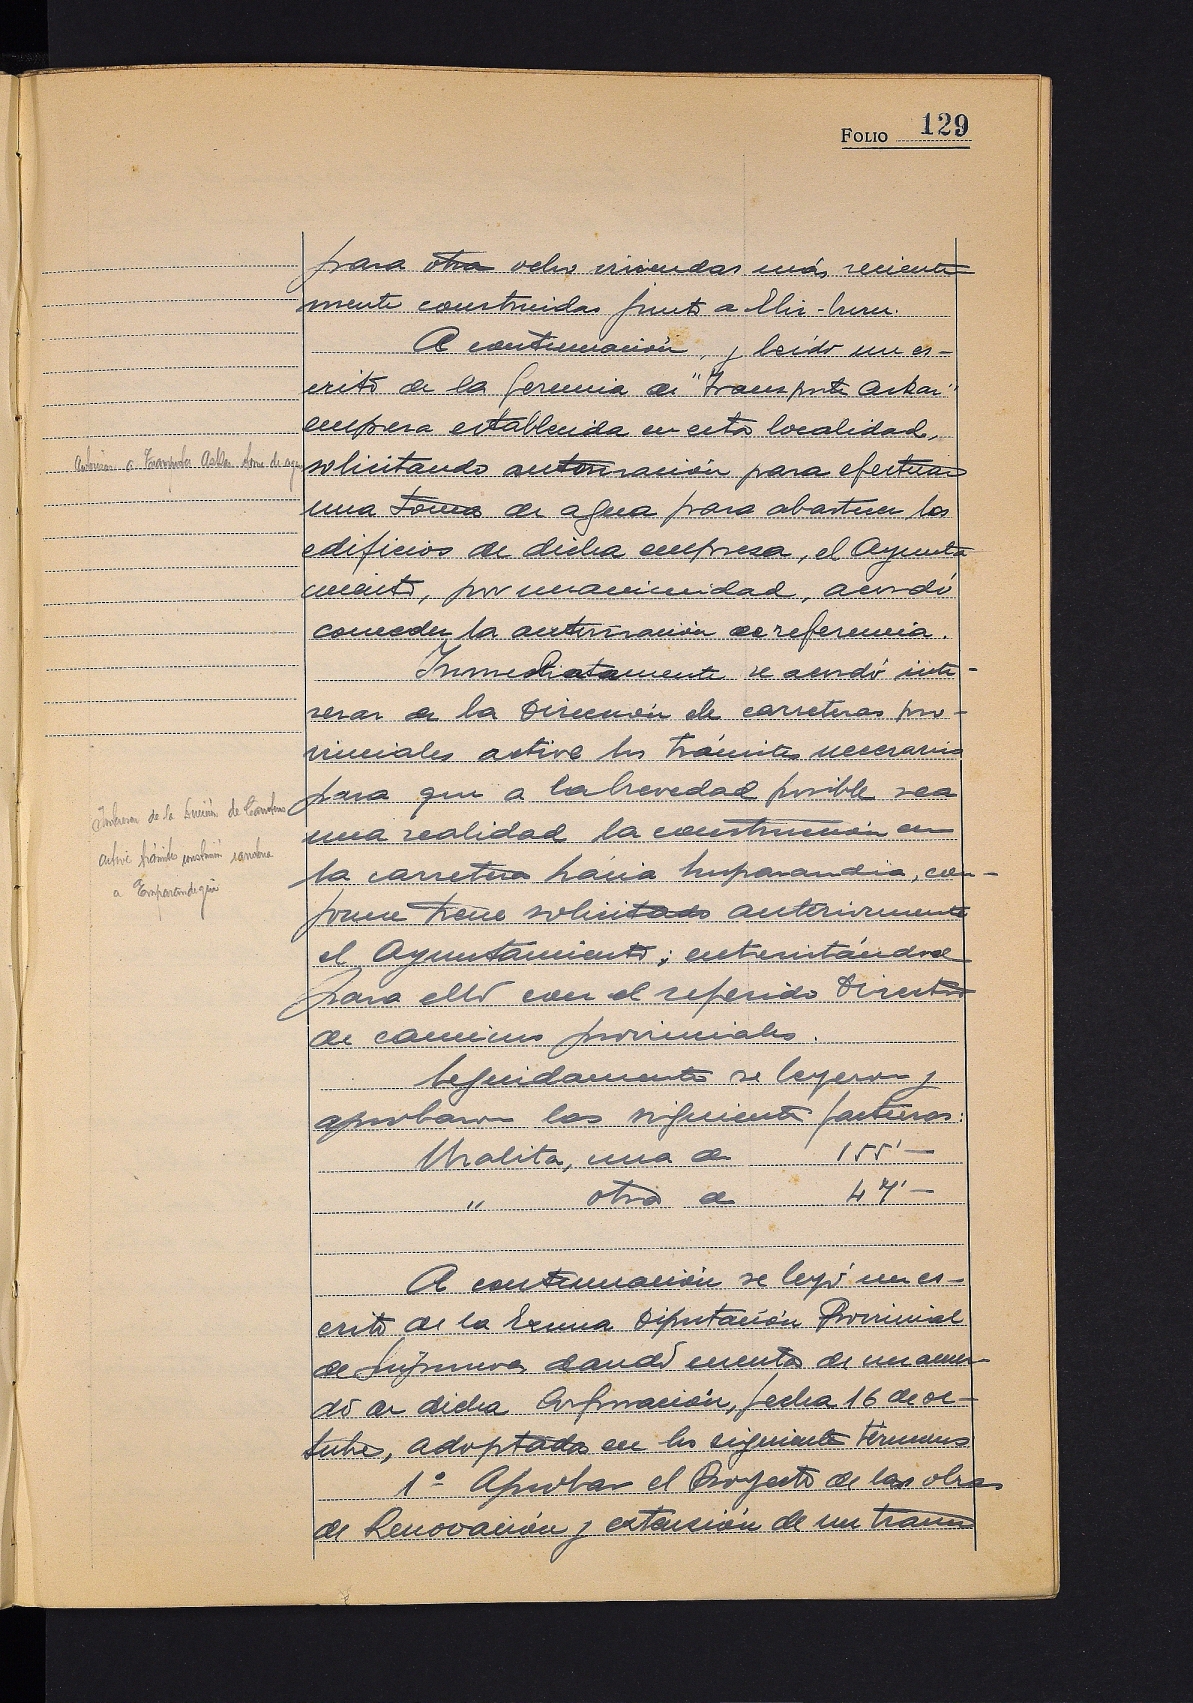 FOLIO 129
para otra ocho viviendas más reciente
mente construidas junto a
A continuación, y leído un es-
crito de la Gerencia de "Transporte Askar"
empresa establecida en esta localidad,
solicitando autorización para efectuar
Autorizan a Transportes Askar toma de agua
una toma de agua para abastecer los
edificios de dicha empresa, el Ayunta
miento, por unanimidad, acordó
conceder la autorización de referencia.
Inmediatamente se acordó inte-
resar de la Dirección de carreteras pro-
vinciales active los trámites necesarios
para que a la brevedad posible sea
Interesan de la Dirección de Carreteras
active trámites construcción carretera
a
una realidad la construcción en
la carretera hácia con-
forme tiene solicitado anteriormente
el Ayuntamiento; entrevistándose
para elló con el referido Director
de caminos provinciales.
Seguidamente se leyeron y
aprobaron las siguiente facturas:
Uralita, una de 155'—
" otra de 47'—
A continuación se leyó un es-
crito de la Excma Diputación Provincial
de Guipuzcoa dandó cuenta de un acuer-
do de dicha Corporación, fecha 16 de oc-
tubre, adoptado en los siguiente términos
1º Aprobar el Proyecto de las obras
de Renovación y extensión de un tramo